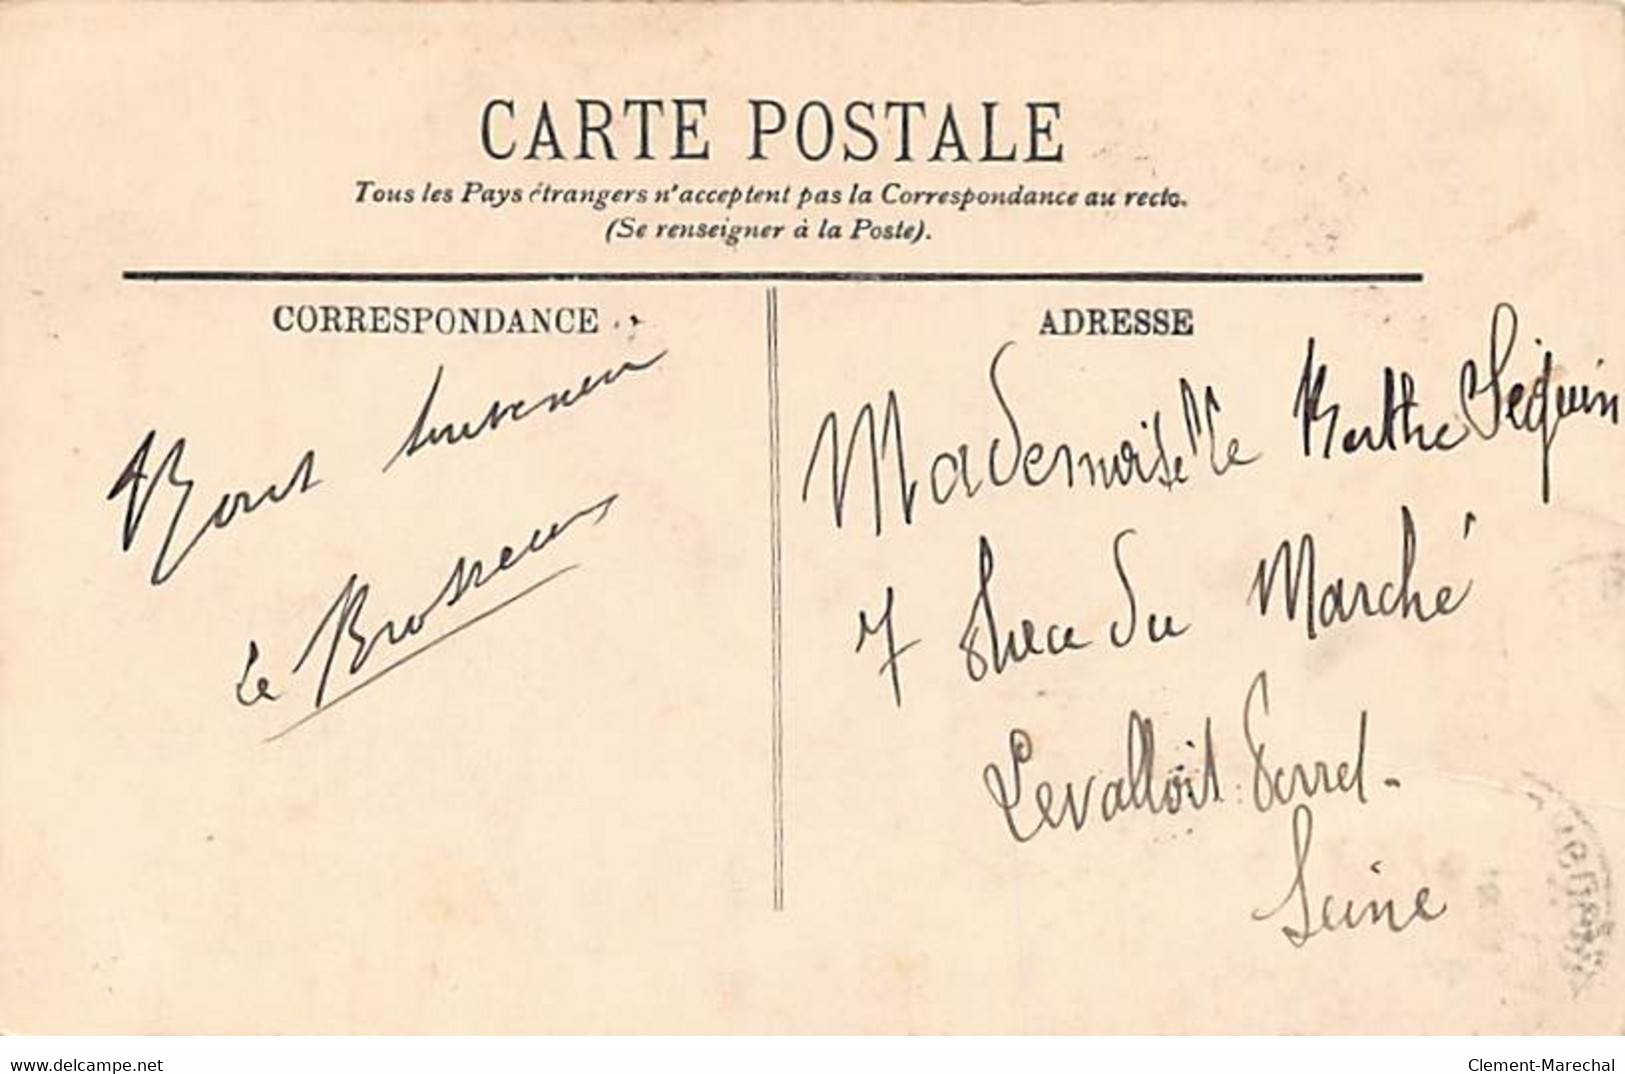 CARTE POSTALE
Tous les Pays étrangers n'acceptent pas la Correspondance au recto.
(Se renseigner à la Poste).
CORRESPONDANCE
ADRESSE
souvenir
Le
Mademoiselle Berthe Séguin
7 Rue du Marché
Levalloit Perret -
Seine
delcampe.net
Clement-Marechal